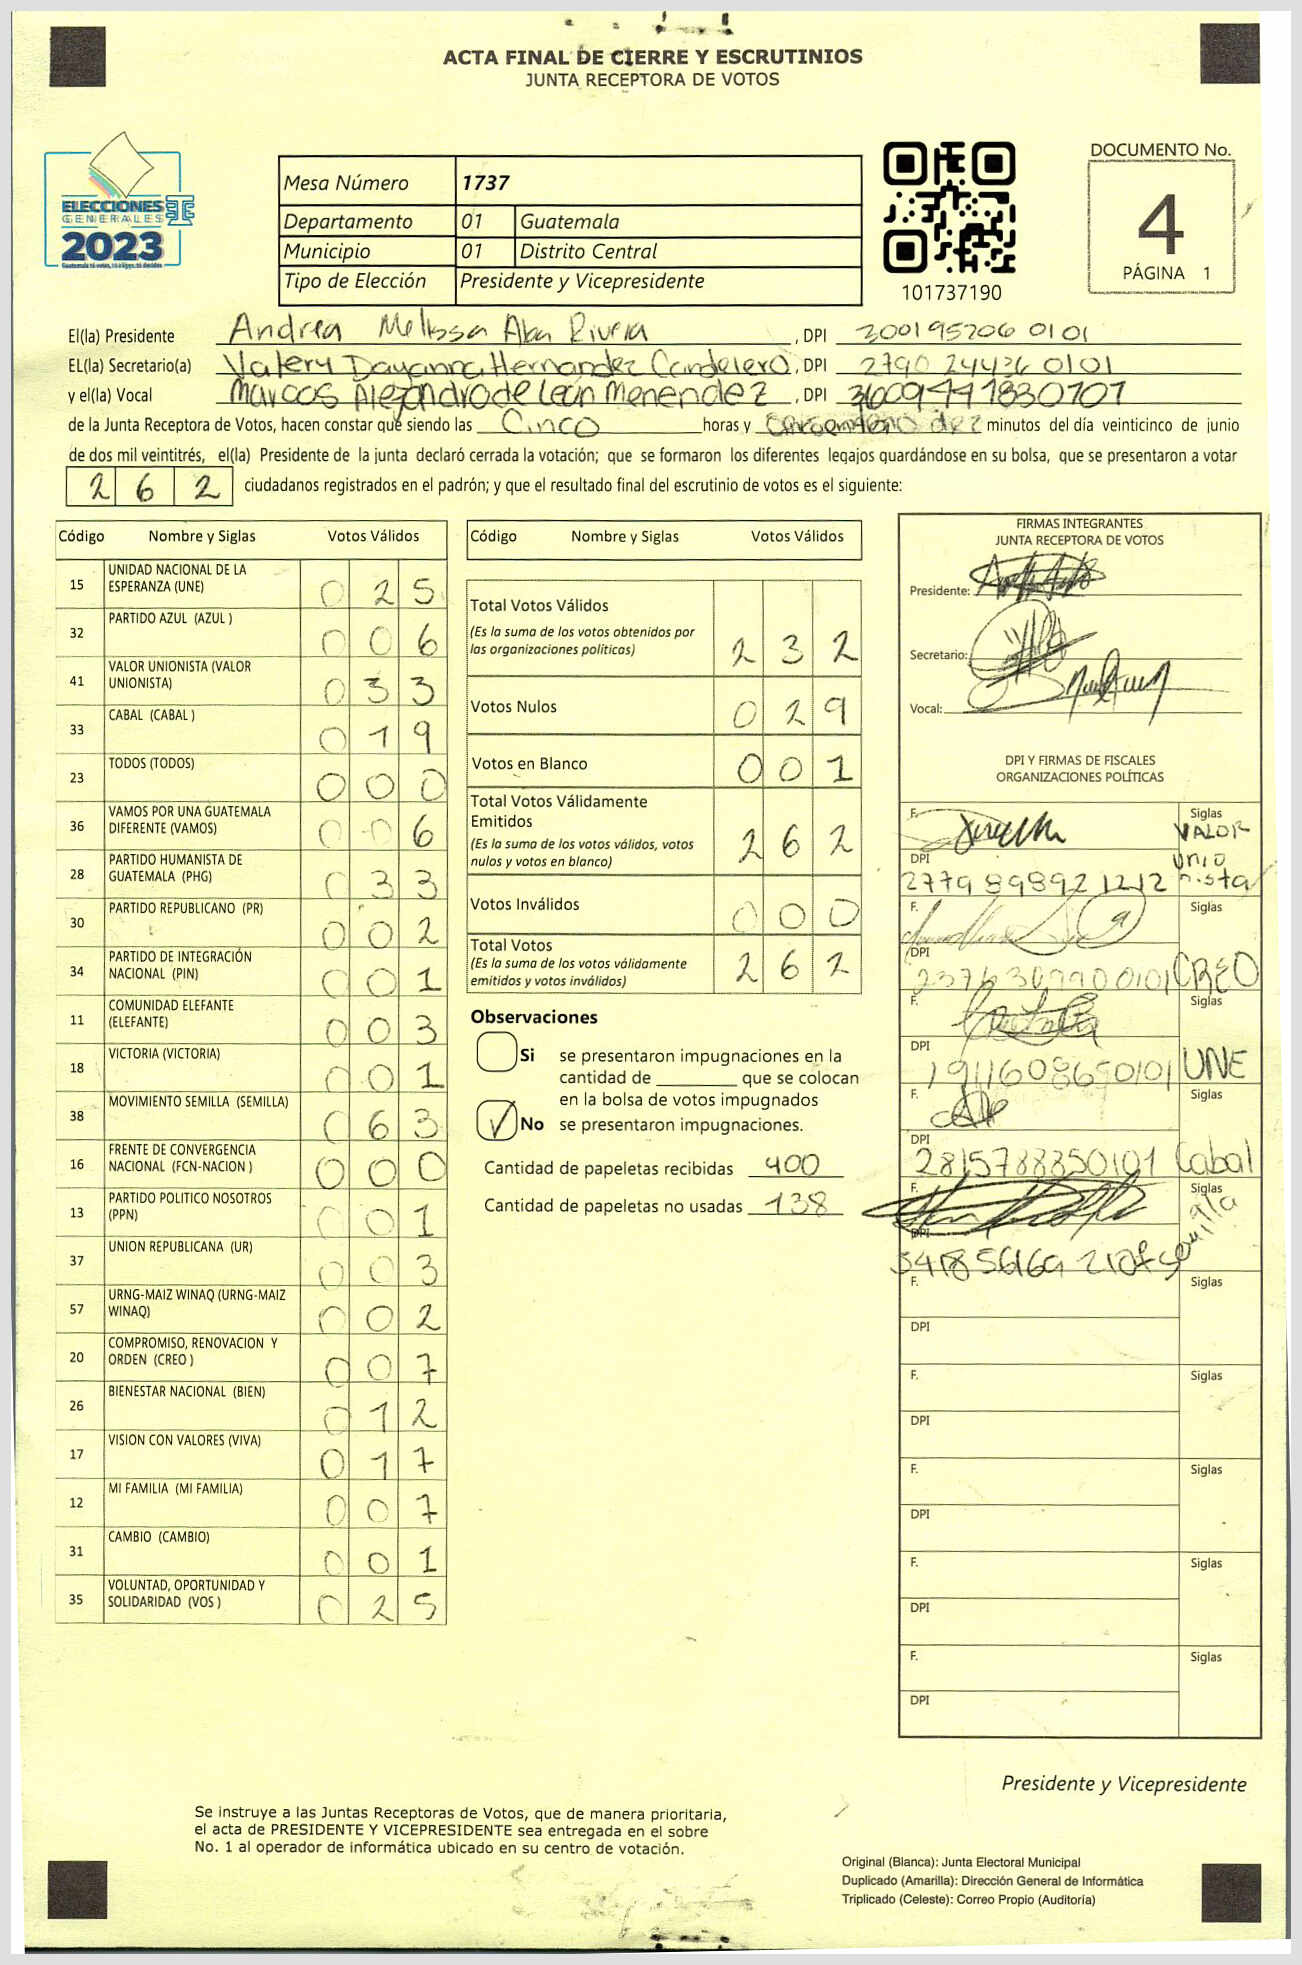 ACTA FINAL DE CIERRE Y ESCRUTINIOS
JUNTA RECEPTORA DE VOTOS
ELECCIONES
GENERALES
2023
Mesa Número 1737
Departamento 01 Guatemala
Municipio 01 Distrito Central
Tipo de Elección Presidente y Vicepresidente
101737190
DOCUMENTO No.
4
PÁGINA 1
El(la) Presidente Andrea Melissa Aba Rivera , DPI 300195206 0101
EL(la) Secretario(a) Valery Dayanna Hernandez Candelero , DPI 2790 24436 0101
y el(la) Vocal Marcos Alejandro de León Menendez , DPI
de la Junta Receptora de Votos, hacen constar que siendo las Cinco horas y diez minutos del día veinticinco de junio
de dos mil veintitrés, el(la) Presidente de la junta declaró cerrada la votación; que se formaron los diferentes legajos guardándose en su bolsa, que se presentaron a votar
262 ciudadanos registrados en el padrón; y que el resultado final del escrutinio de votos es el siguiente:
Código Nombre y Siglas Votos Válidos
15 UNIDAD NACIONAL DE LA
ESPERANZA (UNE) 0 2 5
32 PARTIDO AZUL (AZUL ) 0 0 6
41 VALOR UNIONISTA (VALOR
UNIONISTA) 0 3 3
33 CABAL (CABAL ) 0 1 9
23 TODOS (TODOS) 0 0 0
36 VAMOS POR UNA GUATEMALA
DIFERENTE (VAMOS) 0 0 6
28 PARTIDO HUMANISTA DE
GUATEMALA (PHG) 0 3 3
30 PARTIDO REPUBLICANO (PR) 0 0 2
34 PARTIDO DE INTEGRACIÓN
NACIONAL (PIN) 0 0 1
11 COMUNIDAD ELEFANTE
(ELEFANTE) 0 0 3
18 VICTORIA (VICTORIA) 0 0 1
38 MOVIMIENTO SEMILLA (SEMILLA) 0 6 3
16 FRENTE DE CONVERGENCIA
NACIONAL (FCN-NACION ) 0 0 0
13 PARTIDO POLITICO NOSOTROS
(PPN) 0 0 1
37 UNION REPUBLICANA (UR) 0 0 3
57 URNG-MAIZ WINAQ (URNG-MAIZ
WINAQ) 0 0 2
20 COMPROMISO, RENOVACION Y
ORDEN (CREO ) 0 0 7
26 BIENESTAR NACIONAL (BIEN) 0 1 2
17 VISION CON VALORES (VIVA) 0 1 7
12 MI FAMILIA (MI FAMILIA) 0 0 7
31 CAMBIO (CAMBIO) 0 0 1
35 VOLUNTAD, OPORTUNIDAD Y
SOLIDARIDAD (VOS ) 0 2 5
Código Nombre y Siglas Votos Válidos
Total Votos Válidos
(Es la suma de los votos obtenidos por
las organizaciones políticas) 2 3 2
Votos Nulos 0 2 9
Votos en Blanco 0 0 1
Total Votos Válidamente
Emitidos
(Es la suma de los votos válidos, votos
nulos y votos en blanco) 2 6 2
Votos Inválidos 0 0 0
Total Votos
(Es la suma de los votos válidamente
emitidos y votos inválidos) 2 6 2
Observaciones
Si se presentaron impugnaciones en la
cantidad de ________ que se colocan
en la bolsa de votos impugnados
No se presentaron impugnaciones.
Cantidad de papeletas recibidas 400
Cantidad de papeletas no usadas 138
FIRMAS INTEGRANTES
JUNTA RECEPTORA DE VOTOS
Presidente:
Secretario:
Vocal:
DPI Y FIRMAS DE FISCALES
ORGANIZACIONES POLÍTICAS
F. Siglas
VALOR
Unio
nista
DPI
2779 89892 1212
F. Siglas
DPI
CREO
F. Siglas
DPI
UNE
F. Siglas
DPI
2815788350101 Cabal
F. Siglas
DPI
Semilla
F. Siglas
DPI
F. Siglas
DPI
F. Siglas
DPI
F. Siglas
DPI
F. Siglas
DPI
Presidente y Vicepresidente
Se instruye a las Juntas Receptoras de Votos, que de manera prioritaria,
el acta de PRESIDENTE Y VICEPRESIDENTE sea entregada en el sobre
No. 1 al operador de informática ubicado en su centro de votación.
Original (Blanca): Junta Electoral Municipal
Duplicado (Amarilla): Dirección General de Informática
Triplicado (Celeste): Correo Propio (Auditoría)